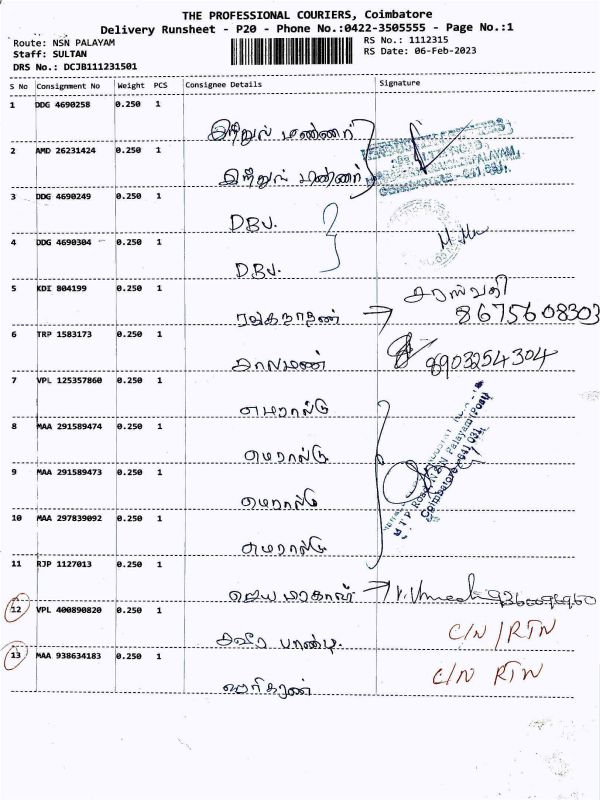 THE PROFESSIONAL COURIERS, Coimbatore
Delivery Runsheet - P20 - Phone No.:0422-3505555 - Page No.:1
Route: NSN PALAYAM
RS No.: 1112315
Staff: SULTAN
RS Date: 06-Feb-2023
DRS No.: DCJB111231501
S No Consignment No Weight PCS Consignee Details Signature
1 DDG 4690258 0.250 1
2 AMD 26231424 0.250 1
3 DDG 4690249 0.250 1
DBV.
4 DDG 4690304 0.250 1
DBV.
5 KDI 804199 0.250 1 சரஸ்வதி
8675608303
6 TRP 1583173 0.250 1
8903254304
7 VPL 125357860 0.250 1
எமரால்டு
8 MAA 291589474 0.250 1
எமரால்டு
9 MAA 291589473 0.250 1
எமரால்டு
10 MAA 297839092 0.250 1
எமரால்டு
Coimbatore - 641 031.
11 RJP 1127013 0.250 1
12 VPL 400890820 0.250 1
C/N / RTN
13 MAA 938634183 0.250 1
C/N RTN
ஹரிகரன்